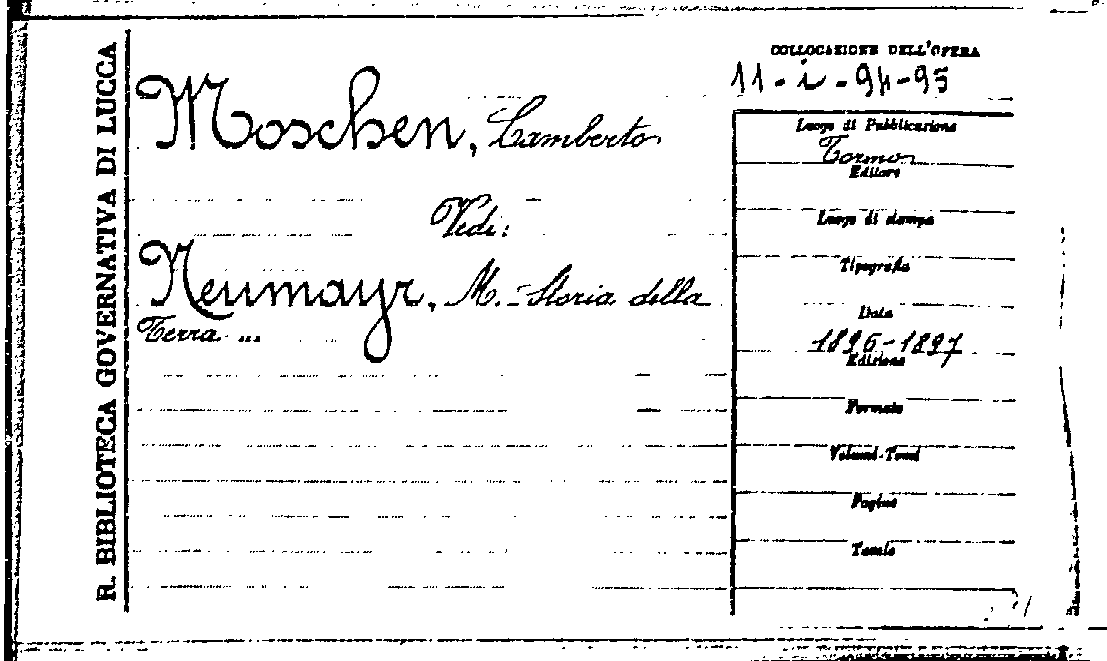 R. BIBLIOTECA GOVERNATIVA DI LUCCA
Moschen, Lamberto
Vedi:
Neumayr, M. - Storia della
Terra ...
COLLOCAZIONE DELL'OPERA
11 - i - 94-95
Luogo di Pubblicazione
Torino
Editore
Luogo di stampa
Tipografia
Data
1896-1897
Edizione
Formato
Volumi-Tomi
Pagine
Tavole